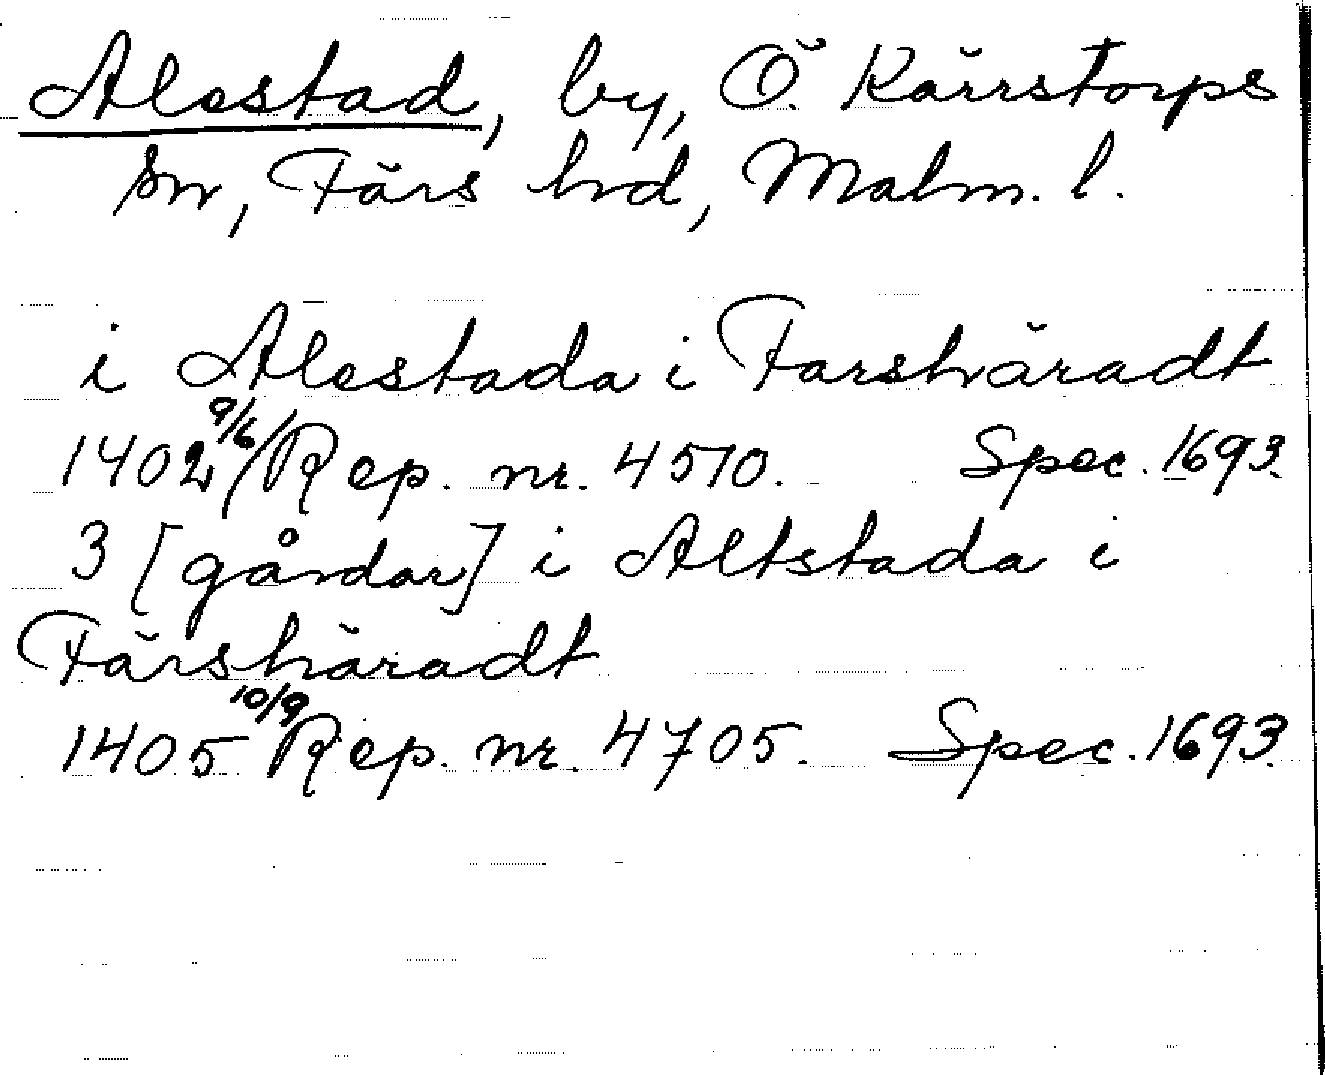 Alestad, by, Ö. Kärrstorps
sn, Färs hd, Malm. l.
i Alestada i Farshäradt
1402 9/6/ Rep. nr. 4510. Spec. 1693.
3 [gårdar] i Altstada i
Färshäradt
1405 10/9 Rep. nr. 4705. Spec. 1693.